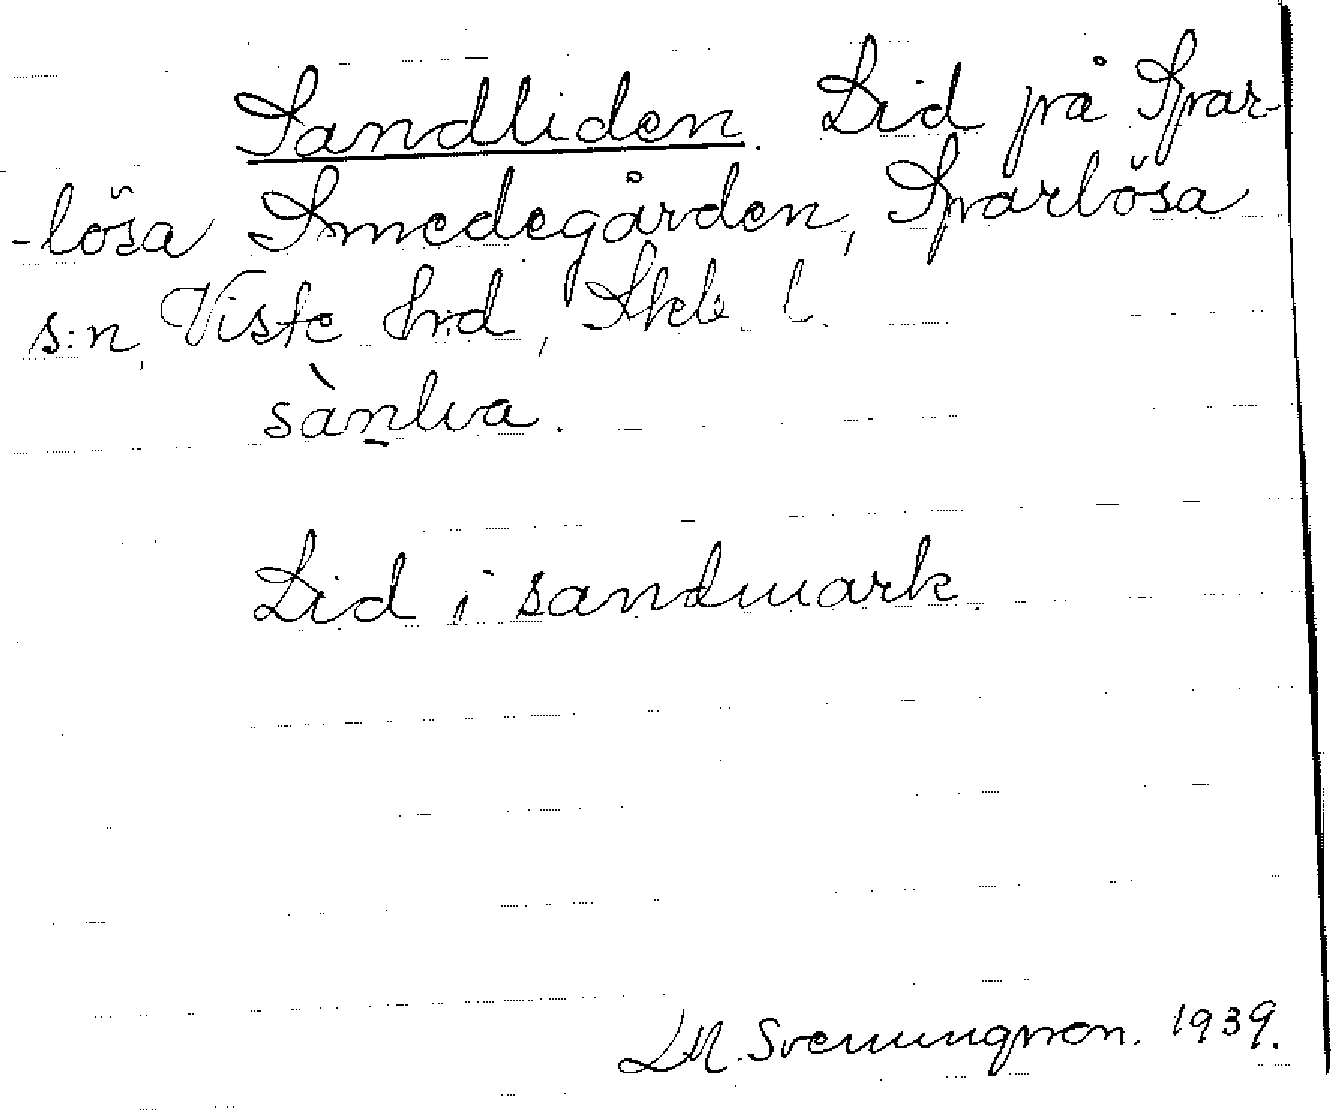 Sandliden. Lid på Spar-
-lösa Smedegården, Sparlösa
s:n, Viste hrd, Skb l.
sàn̲lia.
Lid i sandmark.
LM. Svenungsson. 1939.